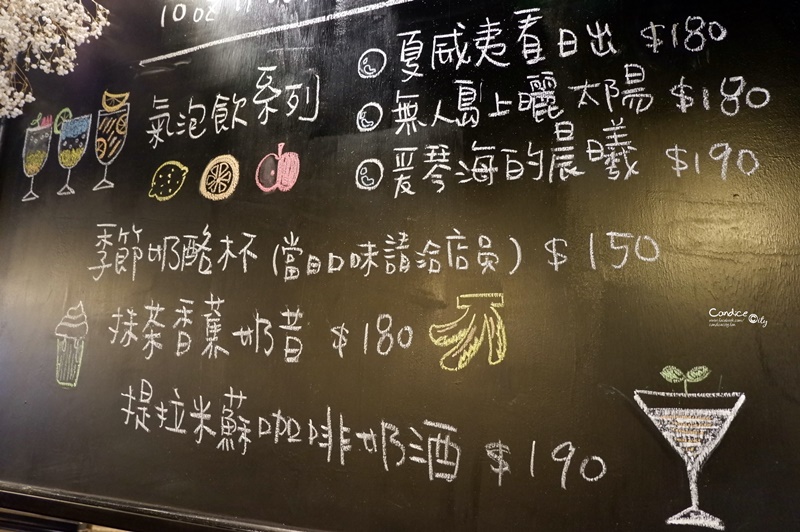 10 oz
氣泡飲系列
夏威夷看日出 $180
無人島上曬太陽 $180
爱琴海的晨曦 $190
季節奶酪杯(當日口味請洽店員) $150
抹茶香蕉奶昔 $180
提拉米蘇咖啡奶酒 $190
Candice City